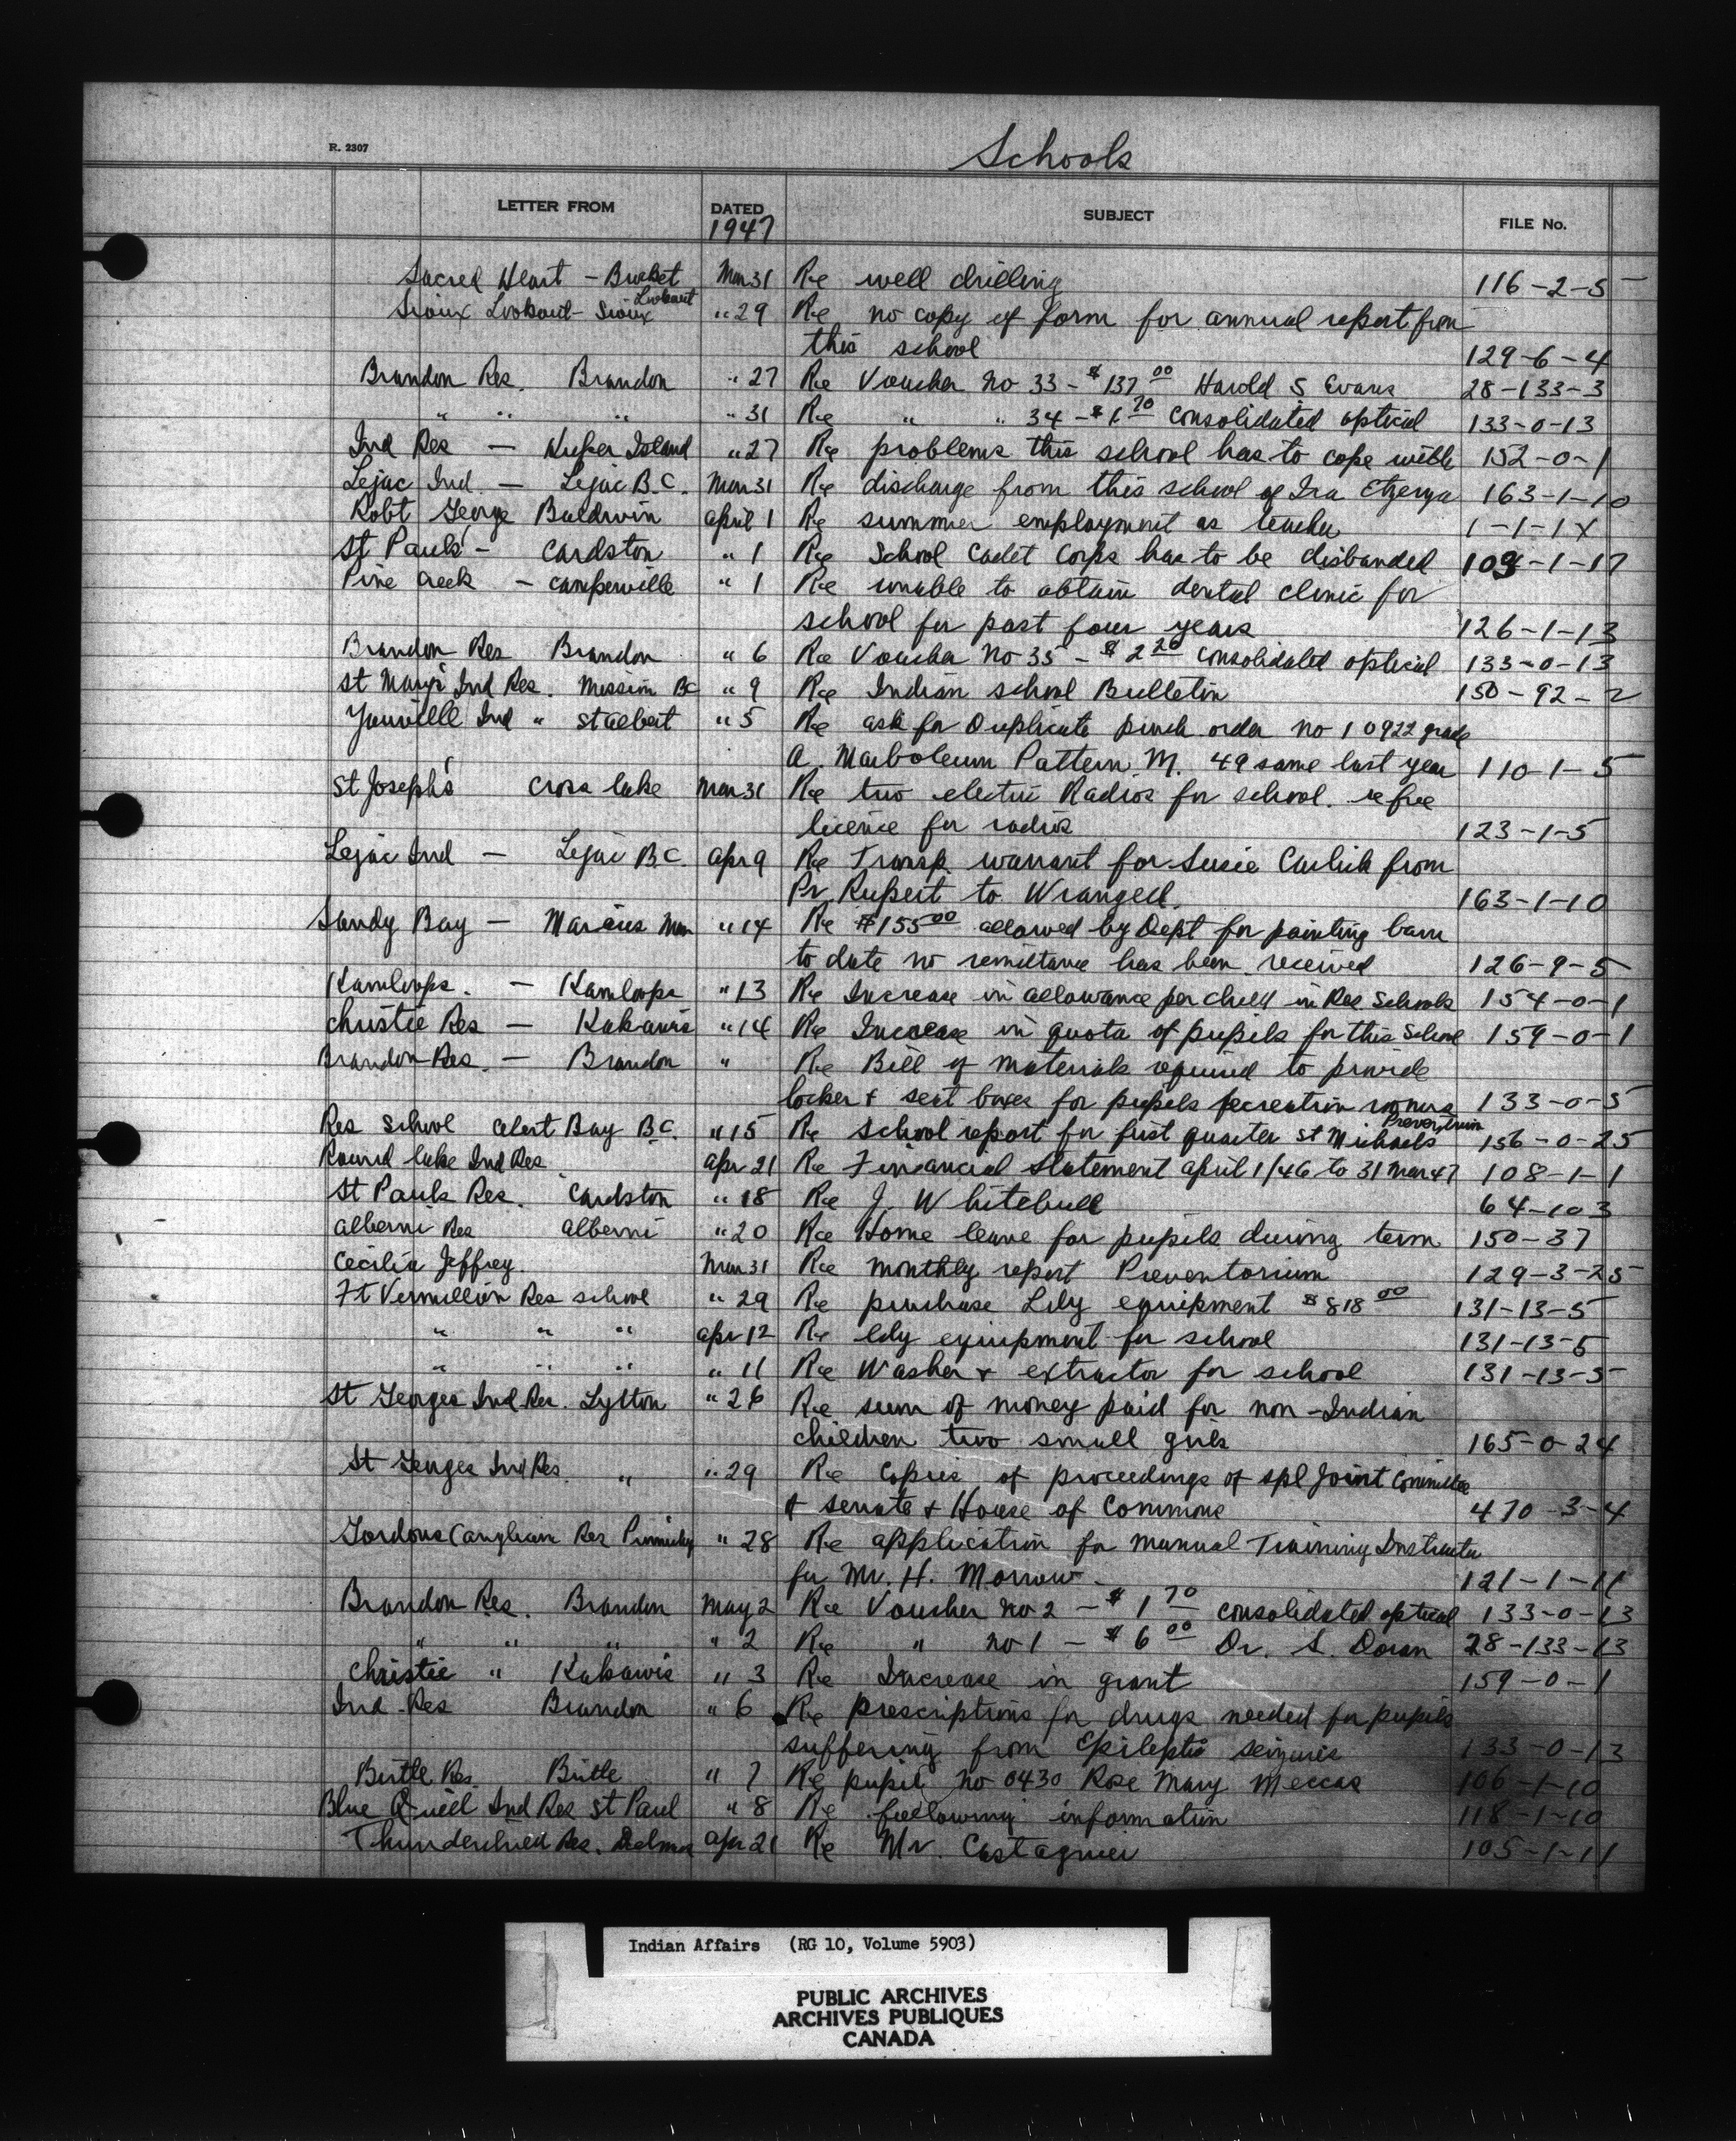 R. 2307
Schools
LETTER FROM DATED SUBJECT FILE No.
1947
Sacred Heart - Brocket Mar 31 Re well drilling 116-2-5
Sioux Lookout - Sioux Lookout " 29 Re no copy of form for annual report from
this school 129-6-4
Brandon Res. Brandon " 27 Re Voucher no 33 - $137 00 Harold S Evans 28-133-3
" " " " 31 Re " " 34 - $6 70 Consolidated optical 133-0-13
Ind Res - Kuper Island " 27 Re problems this school has to cope with 152-0-1
Lejac Ind. - Lejac B.C. Mar 31 Re discharge from this school of Ira 163-1-10
Robt George Baldwin april 1 Re summer employment as teacher 1-1-1X
St Pauls' - Cardston " 1 Re School Cadet Corps has to be disbanded 109-1-17
Pine Creek - Camperville " 1 Re unable to obtain dental clinic for
school for past four years 126-1-13
Brandon Res Brandon " 6 Re Voucher No 35 - $2 20 Consolidated optical 133-0-13
St Mary's Ind Res. Mission BC " 9 Re Indian school Bulletin 150-92-2
Youville Ind " St albert " 5 Re ask for Duplicate purch order no 10922 grade
A. Marboleum Pattern M. 49 same last year 110-1-5
St Joseph's Cross lake Mar 31 Re two electric Radios for school. re free
licence for radios 123-1-5
Lejac Ind - Lejac B.C. apr 9 Re Transp. warrant for Susie Carlick from
Pr. Rupert to Wrangell. 163-1-10
Sandy Bay - Marius Man " 14 Re $155 00 allowed by Dept for painting barn
to date no remittance has been received 126-9-5
Kamloops. - Kamloops " 13 Re Increase in allowance per child in Res Schools 154-0-1
Christie Res - Kakawis " 14 Re Increase in quota of pupils for this School 159-0-1
Brandon Res. - Brandon " Re Bill of materials required to provide
locker & seat boxes for pupils recreation rooms 133-0-5
Res School Alert Bay B.C. " 15 Re School report for first quarter St Michaels Preventrium 156-0-25
Round lake Ind Res apr 21 Re Financial Statement april 1/46 to 31 Mar 47 108-1-1
St Pauls Res. Cardston " 18 Re J. Whitebull 64-103
alberni Res alberni " 20 Re Home leave for pupils during term 150-37
Cecilia Jeffrey. Mar 31 Re monthly report Preventorium 129-3-25
Ft Vermillion Res school " 29 Re purchase Ldy equipment $818 00 131-13-5
" " " apr 12 Re ldy equipment for school 131-13-5
" " " " 11 Re Washer & extractor for school 131-13-5
St Georges Ind Res. Lytton " 26 Re sum of money paid for non-Indian
children two small girls 165-0-24
St Georges Ind Res. " " 29 Re Copies of proceedings of spl Joint Committee
& senate & House of Commons 470-3-4
Gordons Anglican Res Punnichy " 28 Re application for Manual Training Instructor
for Mr. H. Morrow 121-1-11
Brandon Res. Brandon May 2 Re Voucher no 2 - $1 70 consolidated optical 133-0-13
" " " " 2 Re " no 1 - $6 00 Dr. S. Doran 28-133-13
Christie " Kakawis " 3 Re Increase in grant 159-0-1
Ind. Res Brandon " 6 Re prescriptions for drugs needed for pupils
suffering from Epileptic seizures 133-0-13
Birtle Res. Birtle " 7 Re pupil no 0430 Rose Mary Meccas 106-1-10
Blue Quill Ind Res St Paul " 8 Re following information 118-1-10
Thunderchild Res. Delmas apr 21 Re Mr. Castagnier 105-1-11
Indian Affairs (RG 10, Volume 5903)
PUBLIC ARCHIVES
ARCHIVES PUBLIQUES
CANADA